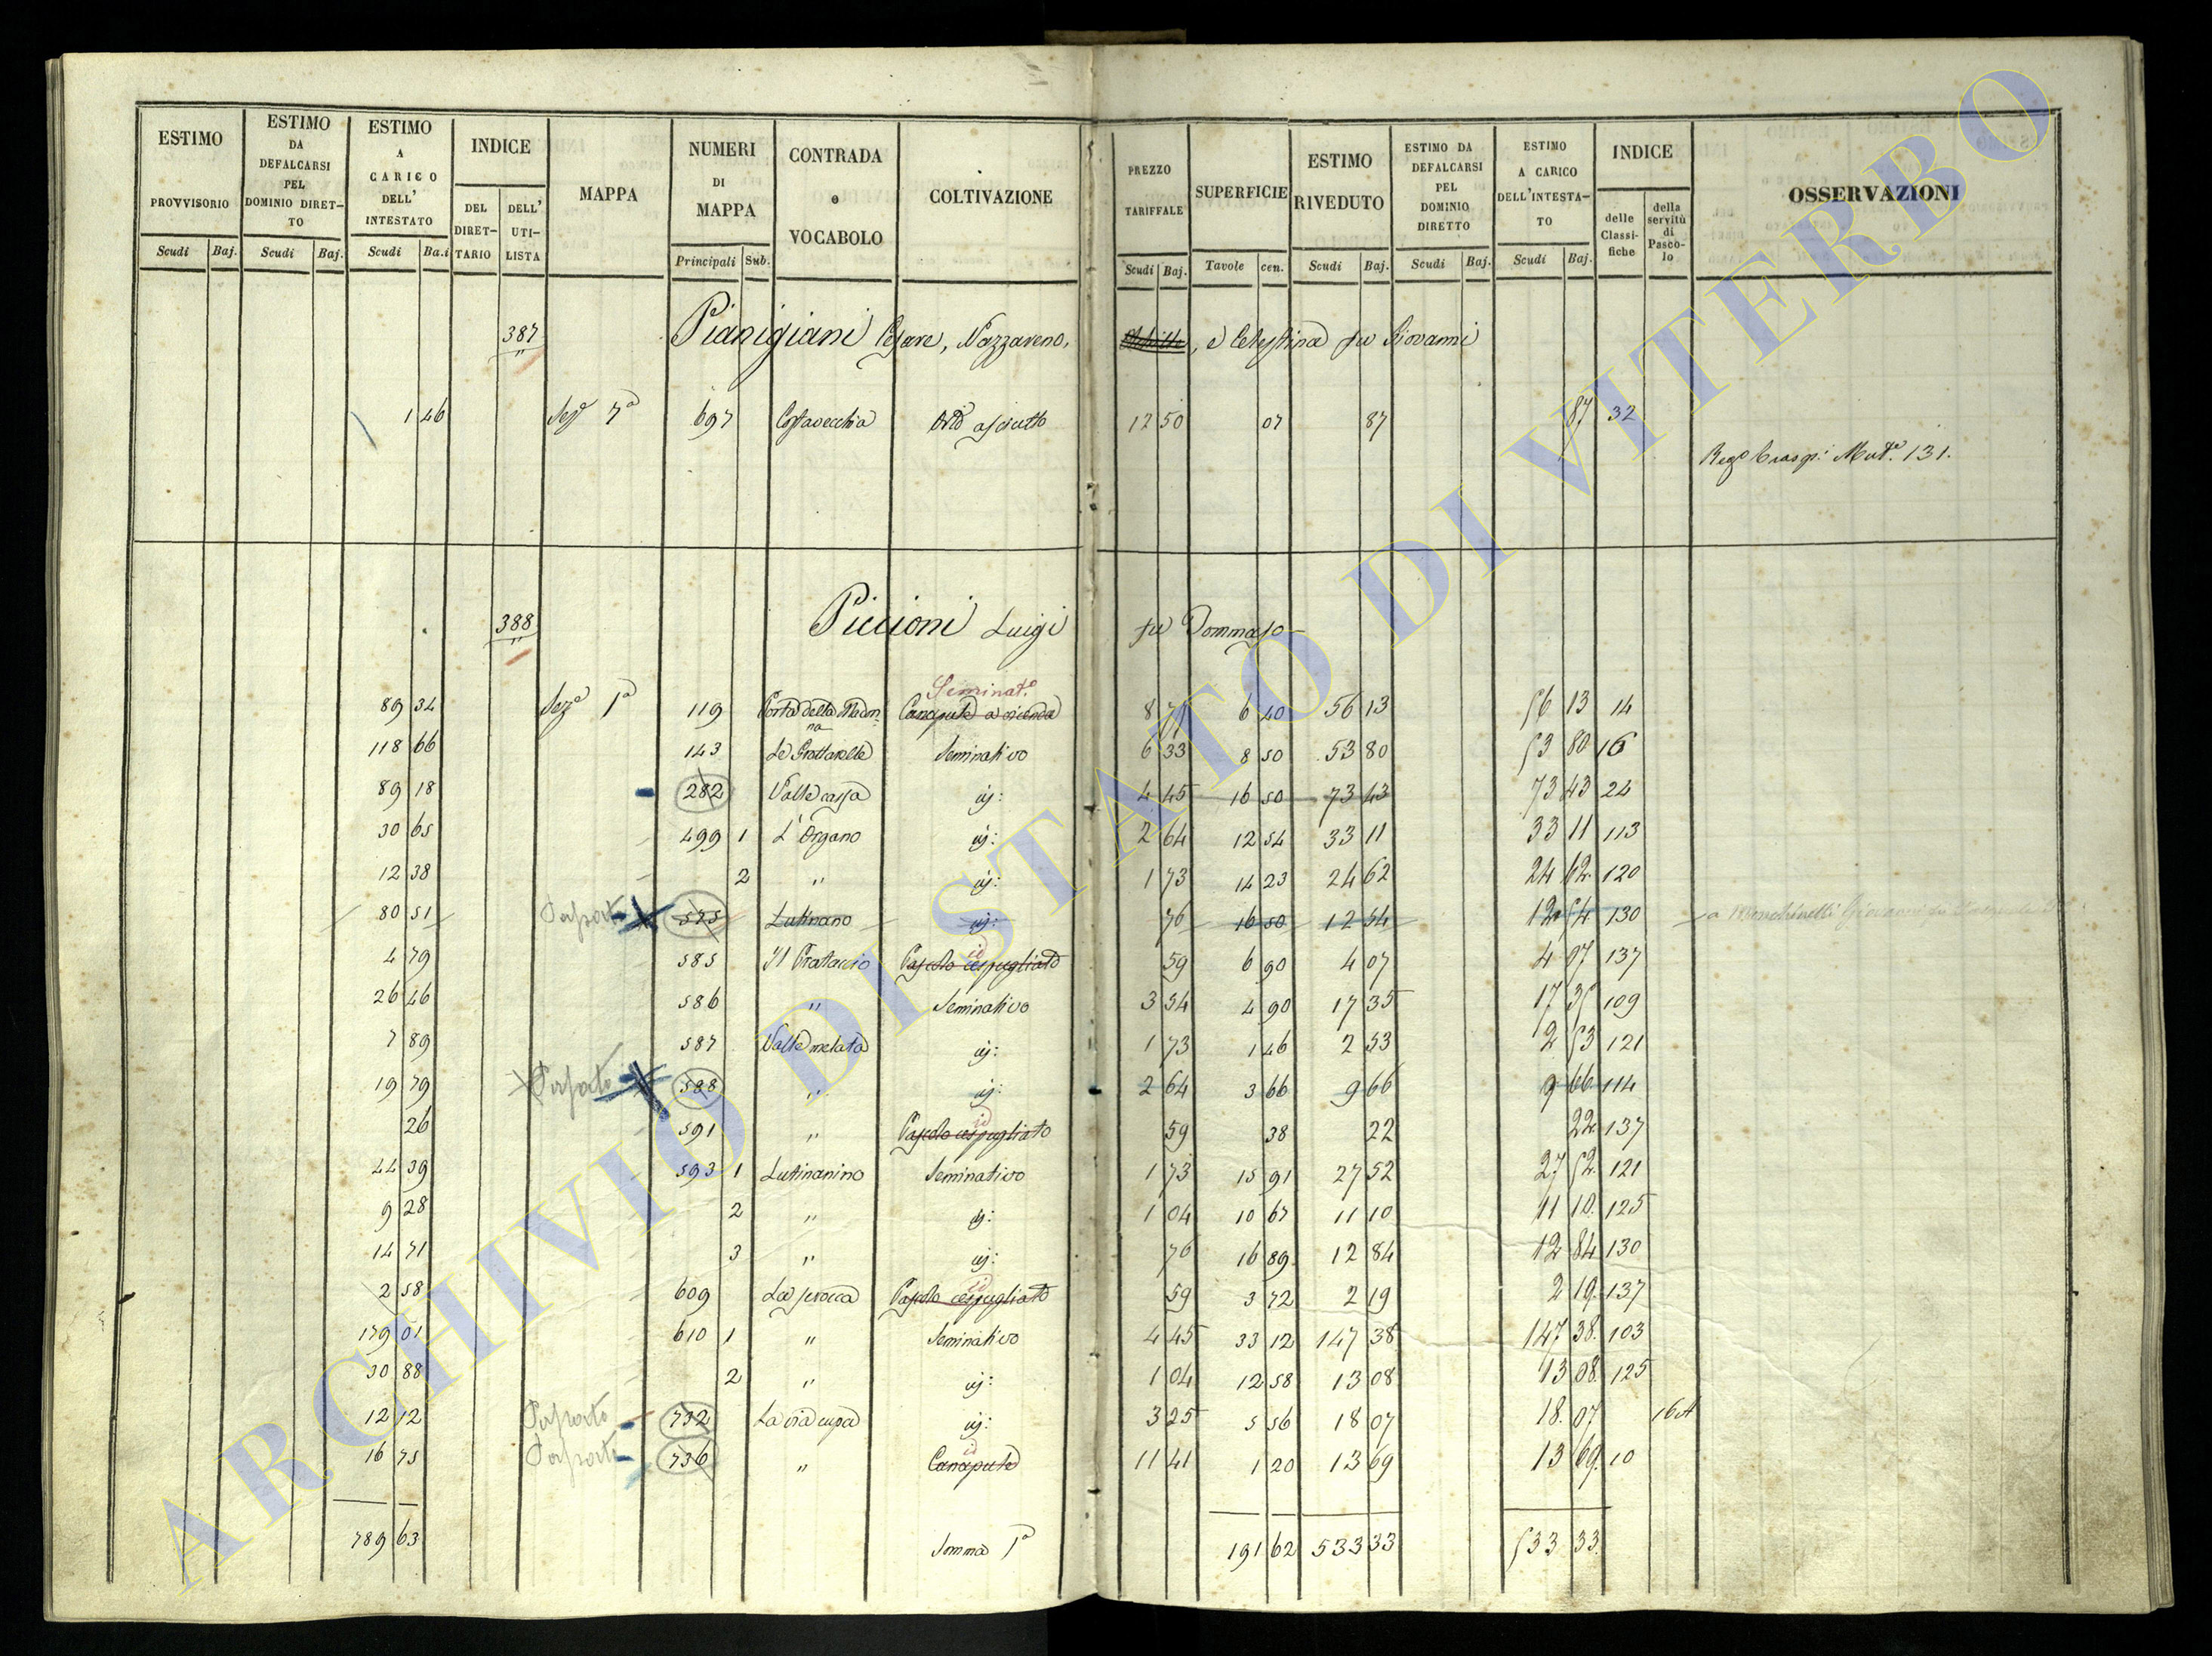 ESTIMO PROVVISORIO Scudi Baj.
ESTIMO DA DEFALCARSI PEL DOMINIO DIRET-TO Scudi Baj.
ESTIMO A CARICO DELL' INTESTATO Scudi Ba.i
INDICE DEL DIRET-TARIO DELL' UTI-LISTA
MAPPA
NUMERI DI MAPPA Principali Sub.
CONTRADA e VOCABOLO
COLTIVAZIONE
PREZZO TARIFFALE Scudi Baj.
SUPERFICIE Tavole cen.
ESTIMO RIVEDUTO Scudi Baj.
ESTIMO DA DEFALCARSI PEL DOMINIO DIRETTO Scudi Baj.
ESTIMO A CARICO DELL'INTESTA-TO Scudi Baj.
INDICE delle Classi-fiche della servitù di Pasco-lo
OSSERVAZIONI
387 Pianigiani Cesare, Nazzareno, , e Celestina fu Giovanni
1 46 Sez.e 7a 697 Costavecchia Orto asciutto 12 50 07 87 87 32
Reg.o Trasp.i Mut.e 131.
388 Piccioni Luigi fu Tommaso
Seminat.o
89 34 Sez.e 1a 119 Porta della Madon-na Canapule a vicenda 8 77 6 40 56 13 56 13 14
118 66 143 Le Grottarelle Seminativo 6 33 8 50 53 80 53 80 16
89 18 282 Valle cassa id: 4 45 16 50 73 43 73 43 24
30 65 499 1 L'Organo id: 2 64 12 54 33 11 33 11 113
12 38 2 " id: 1 73 14 23 24 62 24 62 120
80 51 575 Lutinano id: 76 16 50 12 54 12 54 130
4 79 585 Il Prataccio Pascolo cespugliato id 59 6 90 4 07 4 07 137
26 46 586 " Seminativo 3 54 4 90 17 35 17 35 109
7 89 587 Valle melata id: 1 73 1 46 2 53 2 53 121
19 79 588 " id: 2 64 3 66 9 66 9 66 114
26 591 " Pascolo cespugliato id 59 38 22 22 137
44 39 593 1 Lutinanino Seminativo 1 73 15 91 27 52 27 52 121
9 28 2 " id: 1 04 10 67 11 10 11 10 125
14 71 3 " id: 76 16 89 12 84 12 84 130
2 58 609 La scrocca Pascolo cespugliato id 59 3 72 2 19 2 19 137
179 01 610 1 " Seminativo 4 45 33 12 147 38 147 38 103
30 88 2 " id: 1 04 12 58 13 08 13 08 125
12 12 732 La via cupa id: 3 25 5 56 18 07 18 07 16A
16 75 736 " Canapule id 11 41 1 20 13 69 13 69 10
789 63 Somma 1a 191 62 533 33 533 33
ARCHIVIO DI STATO DI VITERBO